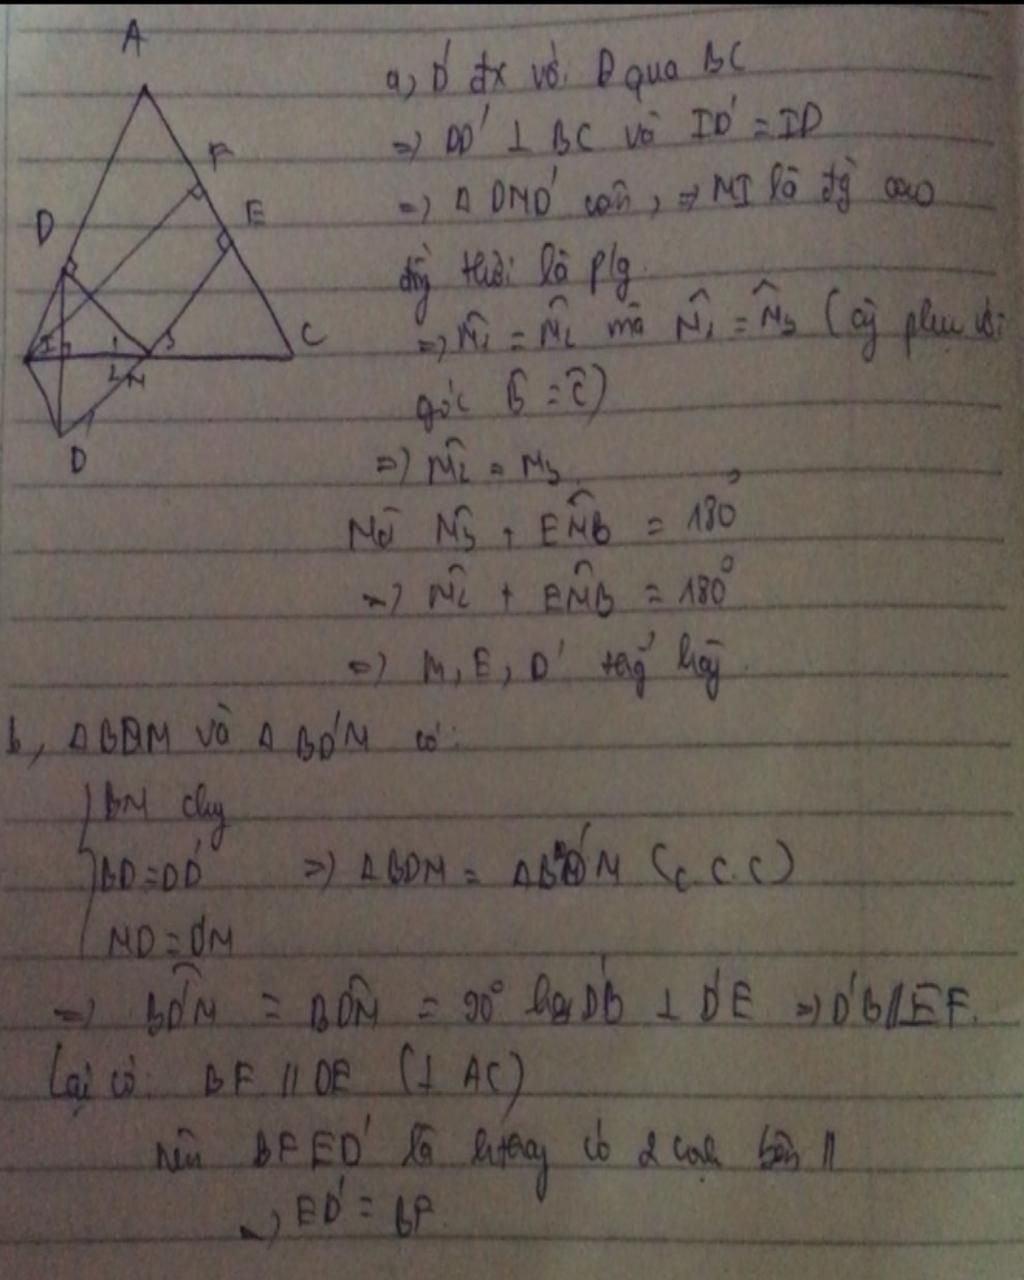 A
F
E
D
C
I
1
3
2
M
D
a, D' đx với D qua BC
=> DD' ⊥ BC và ID' = ID
=> Δ DMD' cân, => MI là đg cao
đồng thời là p/g
=> M̂₁ = M̂₂ mà M̂₁ = M̂₃ (cg phụ với
góc B̂ = Ĉ)
=> M̂₂ = M₃
Mà M̂₃ + EM̂B = 180°
=> M̂₂ + EM̂B = 180°
=> M, E, D' thẳg hàg
b, Δ BDM và Δ BD'M có:
BM chg
BD = DD' => Δ BDM = Δ BD'M (c.c.c)
MD = D'M
=> BD̂'M = BD̂M = 90° hay D'B ⊥ D'E => D'B // EF.
Lại có: BF // DE (⊥ AC)
nên BFED' là hthag có 2 cạh bên //
=> ED' = BF